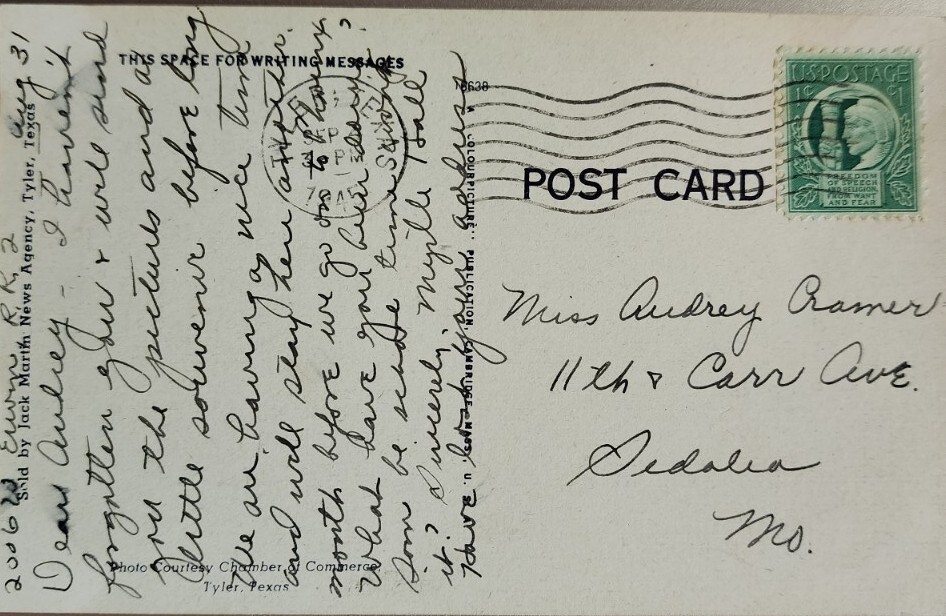 THIS SPACE FOR WRITING MESSAGES
2006 W Erwin R.R. 2
Aug 31
Dear Audrey - I haven't
forgotten you & will send
you the pictures and a
little souvenir before long
We are having a nice time
and will stay here another
month before we go on to
What have you been doing?
be school time
it? Sincerely, Myrtle Hall
Have lost your address
Sold by Jack Martin News Agency, Tyler, Texas
Photo Courtesy Chamber of Commerce,
Tyler, Texas
78638
"COLOURPICTURE" PUBLICATION, CAMBRIDGE, MASS., U. S. A.
TYLER
SEP
TEXAS
POST CARD
U.S. POSTAGE
1¢ ¢1
FREEDOM
OF SPEECH
AND RELIGION,
FROM WANT
AND FEAR
Miss Audrey Cramer
11th & Carr Ave.
Sedalia
Mo.